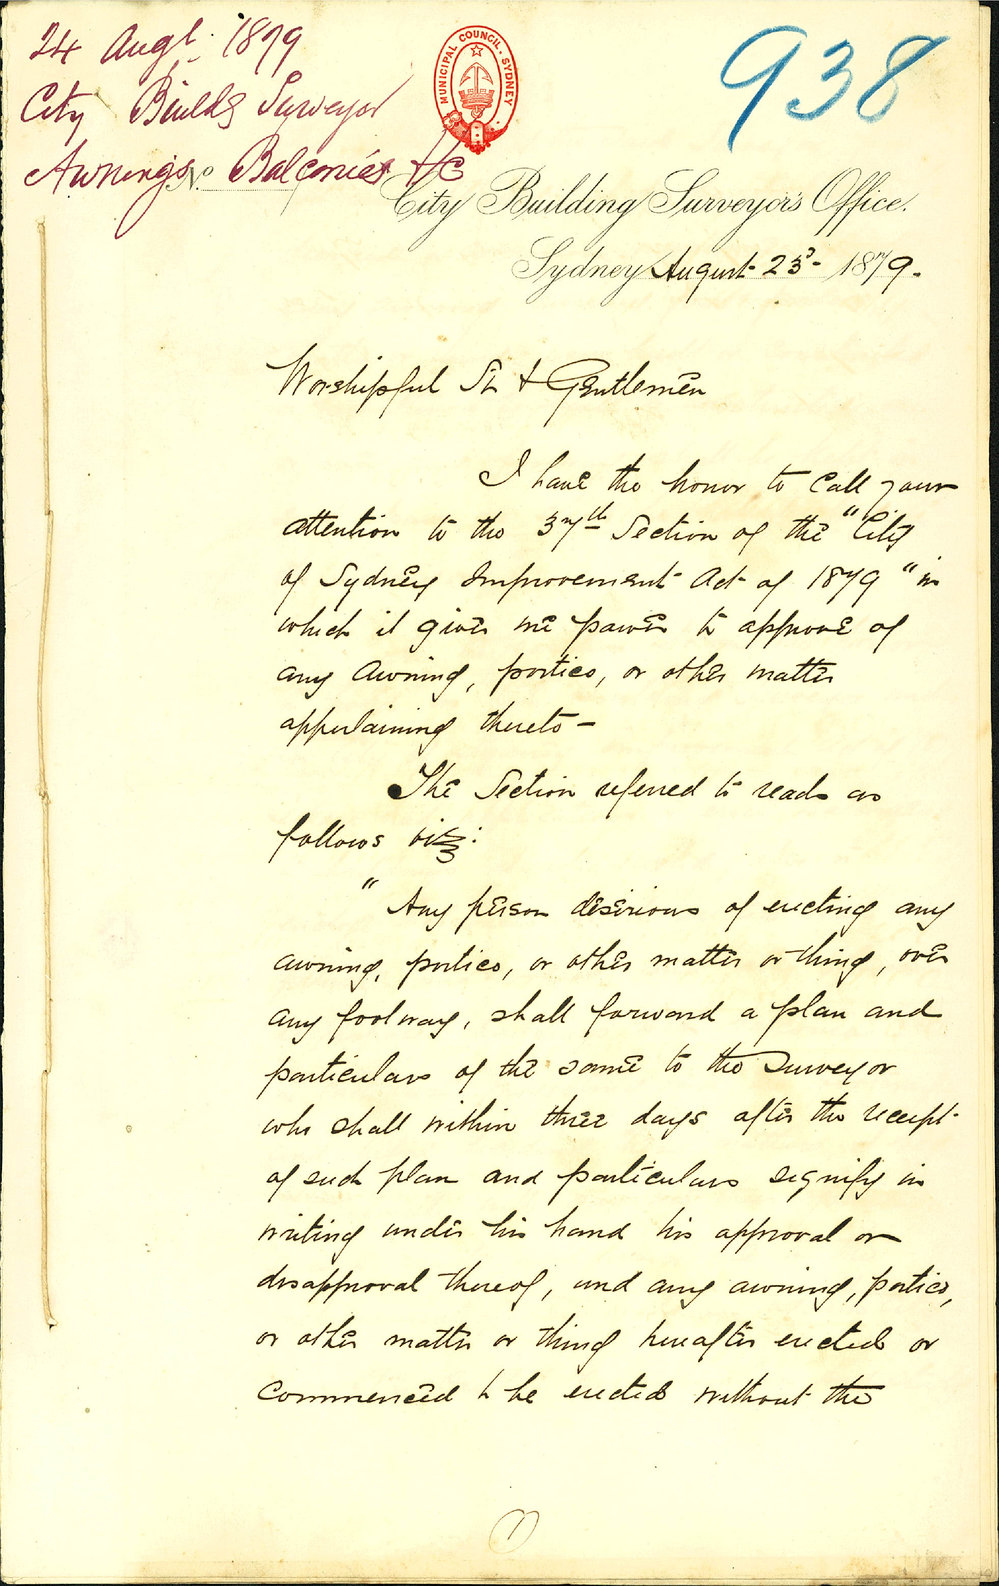 24 Augt. 1879
City Buildg Surveyor
Awnings Balconies &c
938
MUNICIPAL COUNCIL. SYDNEY
No
City Building Surveyor's Office.
Sydney August 23d 1879.
Worshipful Sir & Gentlemen
I have the honor to call your
attention to the 37th Section of the "City
of Sydney Improvement Act of 1879" in
which it gives me power to approve of
any awning, portico, or other matter
appertaining thereto -
The Section referred to reads as
follows viz:
"Any person desirious of erecting any
awning, portico, or other matter or thing, over
any footway, shall forward a plan and
particulars of the same to the Surveyor
who shall within three days after the receipt
of such plan and particulars signify in
writing under his hand his approval or
disapproval thereof, and any awning, portico,
or other matter or thing hereafter erected or
commenced to be erected without the
1